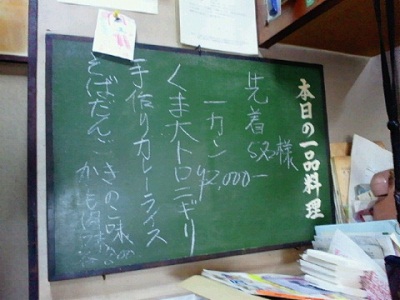 本日の一品料理
先着5名様
一カン ¥2,000-
くま大トロニギリ
手作りカレーライス
そばだんご きのこ味
かも肉味